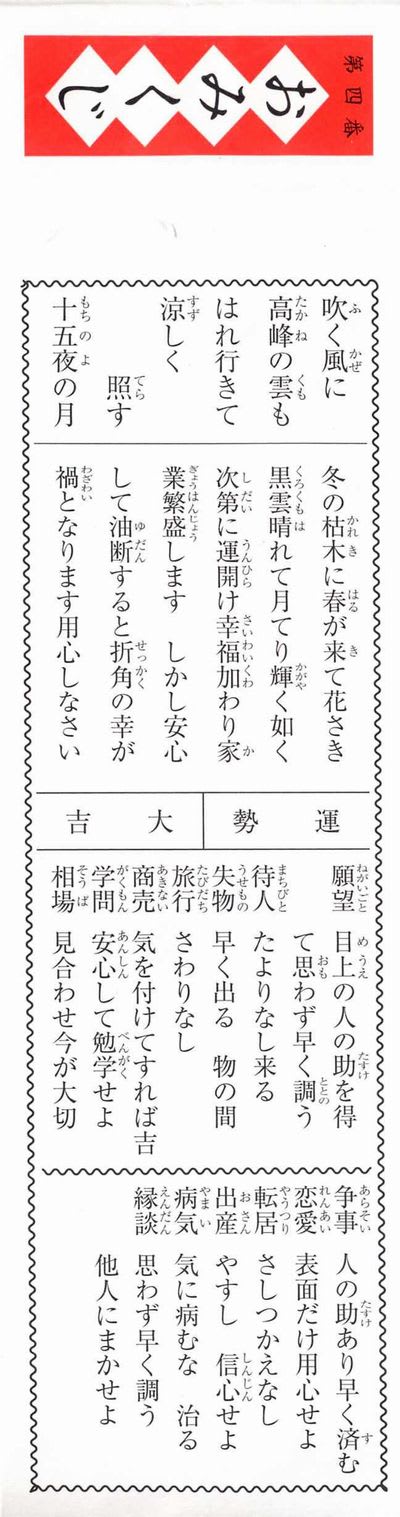 第四番
おみくじ
吹く風に
高峰の雲も
はれ行きて
涼しく
照す
十五夜の月
冬の枯木に春が来て花さき
黒雲晴れて月てり輝く如く
次第に運開け幸福加わり家
業繁盛します　しかし安心
して油断すると折角の幸が
禍となります用心しなさい
運勢　大吉
願望　目上の人の助を得
て思わず早く調う
待人　たよりなし来る
失物　早く出る　物の間
旅行　さわりなし
商売　気を付けてすれば吉
学問　安心して勉学せよ
相場　見合わせ今が大切
争事　人の助あり早く済む
恋愛　表面だけ用心せよ
転居　さしつかえなし
出産　やすし　信心せよ
病気　気に病むな　治る
縁談　思わず早く調う
他人にまかせよ